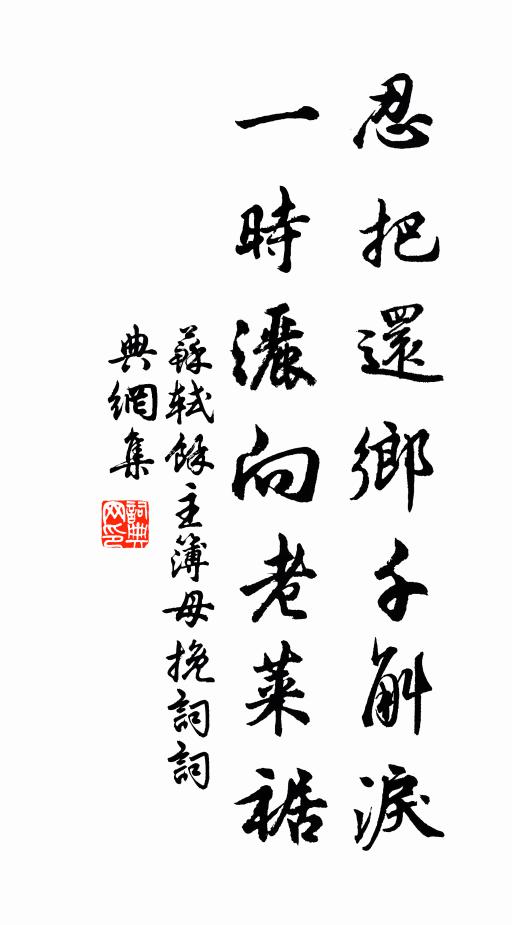 忍把還鄉千斛淚
一時灑向老萊裾
蘇軾餘主簿母挽詞詞
典網集
詞典网印